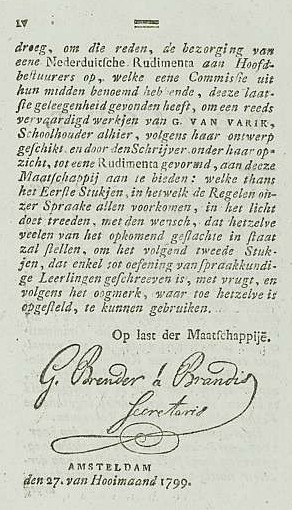 IV
droeg, om die reden, de bezorging van
eene Nederduitsche Rudimenta aan Hoofd-
bestuurers op, welke eene Commissie uit
hun midden benoemd hebbende, deeze laat-
ste geleegenheid gevonden heeft, om een reeds
vervaardigd werkjen van G. VAN VARIK,
Schoolhouder alhier, volgens haar ontwerp
geschikt, en door den Schryver onder haar op-
zicht, tot eene Rudimenta gevormd, aan deeze
Maatschappij aan te bieden: welke thans
het Eerste Stukjen, in hetwelk de Regelen on-
zer Spraake allen voorkomen, in het licht
doet treeden, met den wensch, dat hetzelve
veelen van het opkomend geslachte in staat
zal stellen, om het volgend tweede Stuk-
jen, dat enkel tot oefening van spraakkundi-
ge Leerlingen geschreeven is, met vrugt, en
volgens het oogmerk, waar toe hetzelve is
opgesteld, te kunnen gebruiken.
Op last der Maatschappije.
G. Brender à Brandis
Secretaris
AMSTELDAM
den 27. van Hooimaand 1799.